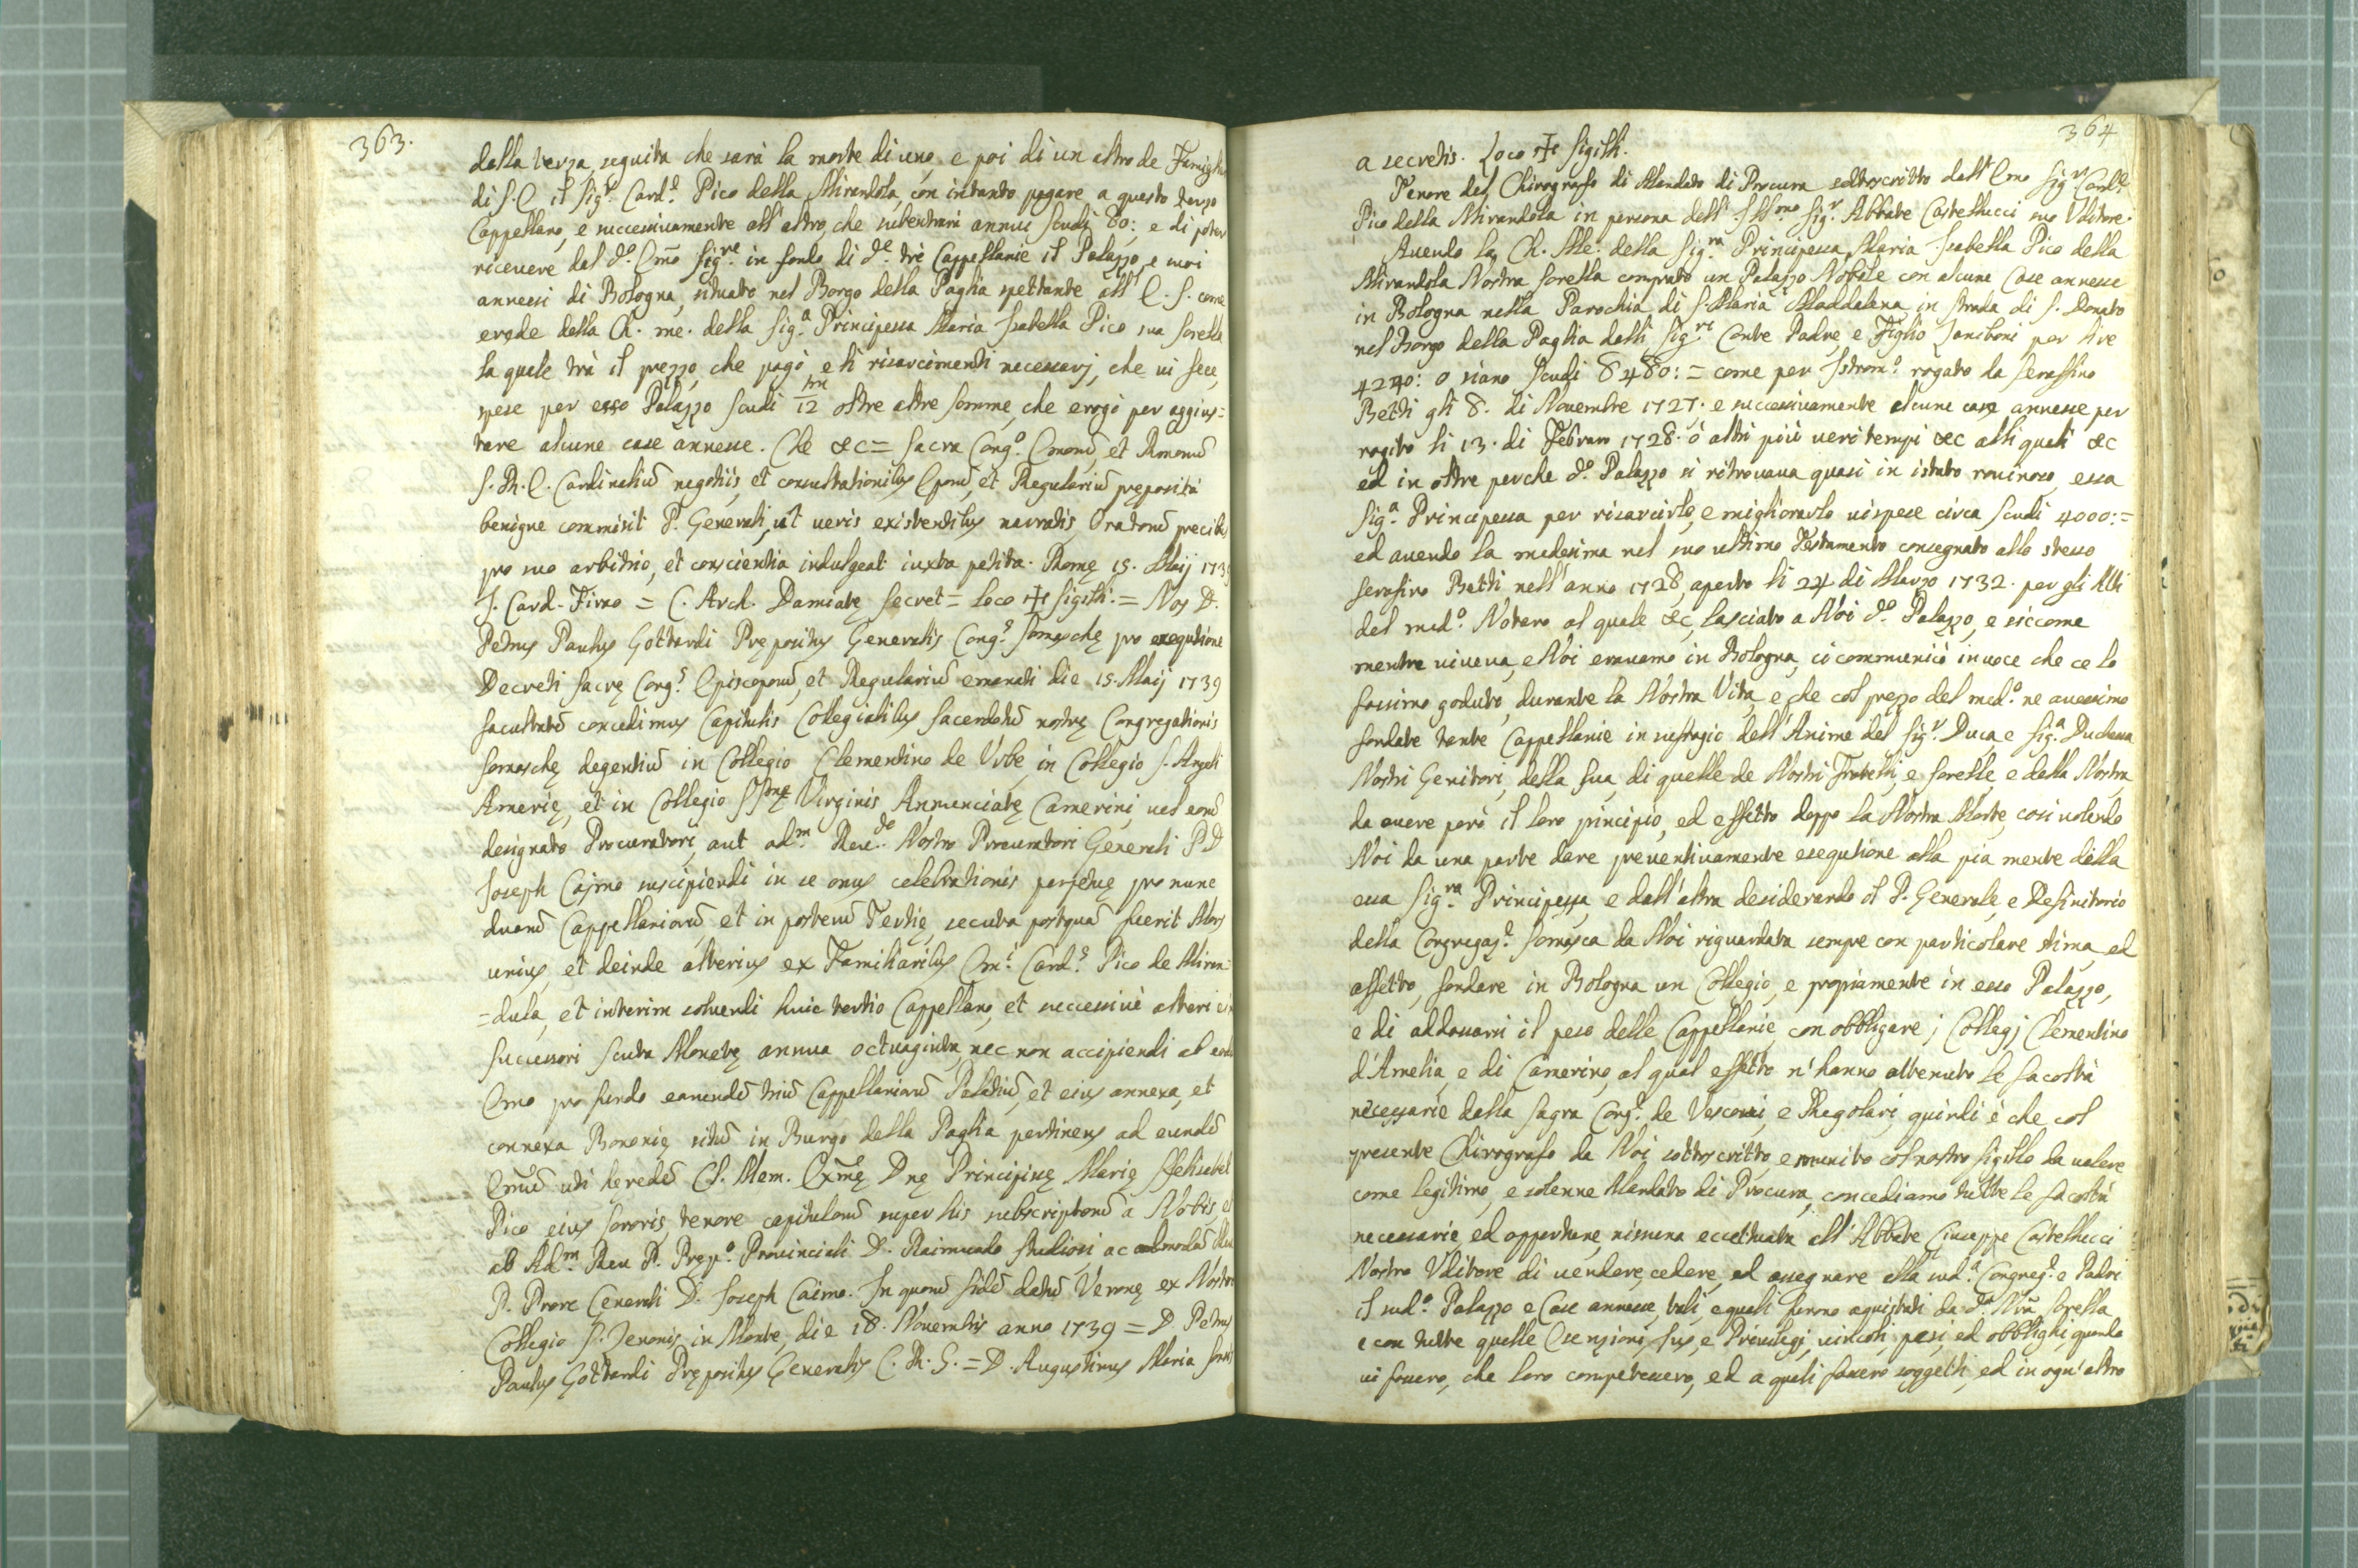 363.
dalla terza, seguita che sarà la morte di uno, e poi di un altro de Famigli
di S. E il Sig.r Card.e Pico della Mirandola, con intanto pagare a questo terzo
Cappellano, e successivamente all'altro, che subentrarà annui Scudi 80:, e di poter
ricevere dal d.o Emo Sig.re in fondo di d.e trè Cappellanie il Palazzo, e suoi
annessi di Bologna, situato nel Borgo della Paglia spettante all'E. S. come
erede della Ch. me. della Sig.a Principessa Maria Isabella Pico sua sorella
la quale trà il prezzo, che pagò, e li risarcimenti necessarj, che vi fece,
spese per esso Palazzo Scudi 12 oltre altre somme, che erogò per aggius=
tare alcune case annesse. Che &c = Sacra Cong.o Emorū, et Rmorū
S. R. E. Cardinaliū negotiis, et consultationibus Eporū, et Regulariū pręposita
benigne commisit P. Generali, ut veris existentibus narratis, Oratorū precibus
pro suo arbitrio, et conscientia indulgeat iuxta petita. Romę 15. Maij 1739
J. Card. Firao = C. Arch. Damiatę Secret = Loco ✝ Sigilli = Nos D.
Petrus Paulus Gottardi Prępositus Generalis Cong.s Somaschę pro exequtione
Decreti Sacrę Cong.s Episcoporū, et Regulariū emanati die 15. Maij 1739
facultatē concedimus Capitulis Collegialibus Sacerdotū nostrę Congregationis
Somaschę degentiū in Collegio Clementino de Urbe, in Collegio S. Angeli
Amerię, et in Collegio SSmę Virginis Annunciatę Camerini, vel eorū
designato Procuratori, aut ad.m Reu.do Nostro Procuratori Generali P D
Joseph Caimo suscipiendi in se onus celebrationis perpetuę pro nunc
duarū Cappellaniarū, et in posterū Tertię, secuta postquā fuerit Mors
unius, et deinde alterius ex Familiaribus Em.i Card.s Pico de Miran=
=dula, et interim soluendi huic tertio Cappellano, et successivè alteri
successori Scuta Monetę annua octuaginta, nec non accipiendi ab eod
Emo pro fundo earundē triū Cappellaniarū Palatiū, et eius annexa, et
connexa Bononię sitū in Burgo della Paglia pertinens ad eundē
Emū uti heredē Cl. Mem. Exmę Dnę Principisę Marię Elisabet
Pico eius Sororis, tenore capitulorū super his subscriptorū à Nobis et
ab Ad.m Reu P. Pręp.o Provinciali D. Raimundo Studiosi ac admodū Reu
P. Prore Generali D. Joseph Caimo. In quorū fidē datū Veronę ex Nostro
Collegio S. Zenonis in Monte, die 18. Nouembris anno 1739 = D. Petrus
Paulus Gottardi Prępositus Generalis C. R. S. = D. Augustinus Maria
364
a secretis. Loco ✝ Sigilli.
Tenore del Chirografo di Mandato di Procura sottoscritto dall'Emo Sig.r Card.e
Pico della Mirandola in persona dell'Ill.mo Sig.r Abbate Castellucci suo Uditore.
Avendo la Ch. Me. della Sig.ra Principessa Maria Isabella Pico della
Mirandola Nostra Sorella comprato un Palazzo Nobile con alcune Case annesse
in Bologna nella Parochia di S. Maria Maddalena in strada di S. Donato
nel Borgo della Paglia dalli Sig.ri Conte Padre, e Figlio Saniboni per lire
4240: o siano Scudi 8480: = come per Istrom.o rogato da Serafino
Betti gli 8. di Novembre 1727. e successivamente alcune case annesse per
rogito li 13. di Febraro 1728. ò altri più veri tempi &c alli quali &c
ed in oltre perche d.o Palazzo si ritrovava quasi in istato rovinoso, essa
Sig.a Principessa per risarcirlo, e migliorarlo vi spese circa Scudi 4000: =
ed avendo la medesima nel suo ultimo Testamento consegnato allo stesso
Serafino Betti nell'anno 1728, aperto li 24 di Marzo 1732. per gli Atti
del med.o Notaro al quale &c, lasciato a Noi d.o Palazzo, e siccome
mentre viveva, e Noi eravamo in Bologna, ci communicò in voce che ce lo
fossimo goduto, durante la Nostra Vita, e che col prezzo del med.o ne avessimo
fondate tante Cappellanie in suffragio dell'Anime del Sig.r Duca e Sig.a Duchessa
Nostri Genitori, della Sua, di quelle de Nostri Fratelli, e Sorelle, e della Nostra,
da avere però il loro principio, ed effetto doppo la Nostra Morte, così volendo
Noi da una parte dare preventivamente esequtione alla pia mente della
essa Sig.ra Principessa, e dall'altra desiderando il P. Generale, e Definitorio
della Congregaz.e Somasca da Noi riguardata sempre con particolare stima, ed
affetto, fondare in Bologna un Collegio, e propriamente in esso Palazzo,
e di addossarsi il peso delle Cappellanie, con obbligare i Collegj Clementino
d'Amelia, e di Camerino, al qual effetto n'hanno ottenuto le facoltà
necessarie dalla Sagra Cong.e de Vescovi, e Regolari, quindi è che col
presente Chirografo da Noi sottoscritto, e munito col nostro Sigillo da valere
come legitimo, e solenne Mandato di Procura, concediamo tutte le facoltà
necessarie ed opportune, nissuna eccettuata all'Abbate Giuseppe Castellucci
Nostro Uditore di vendere, cedere, ed assegnare alla sud.a Congreg.e e Padri
il sud.o Palazzo e Case annesse, tali, e quali furono aquistati da d.a Nrã Sorella
e con tutte quelle Esenzioni, Jus, e Privilegj, vincoli, pesi, ed obblighi, quando
vi fossero, che loro competessero, ed a quali fossero soggetti, ed in ogn'altro